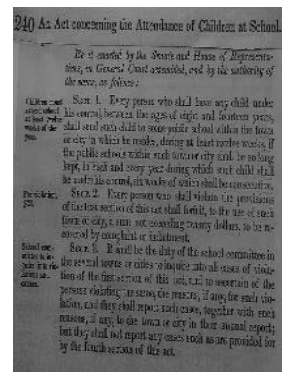 240 An Act concerning the Attendance of Children at School.
Be it enacted by the Senate and House of Representa-
tives, in General Court assembled, and by the authority of
the same, as follows:
Children must
attend school
at least twelve
weeks of the
year.
SECT. 1. Every person who shall have any child under
his control, between the ages of eight and fourteen years,
shall send such child to some public school within the town
or city in which he resides, during at least twelve weeks, if
the public schools within such town or city shall be so long
kept, in each and every year during which such child shall
be under his control, six weeks of which shall be consecutive.
SECT. 2. Every person who shall violate the provisions
of the first section of this act shall forfeit, to the use of such
town or city, a sum not exceeding twenty dollars, to be re-
covered by complaint or indictment.
School com-
mittee to in-
quire into vio-
SECT. 3. It shall be the duty of the school committee in
the several towns or cities to inquire into all cases of viola-
tion of the first section of this act, and to ascertain of the
persons violating the same, the reasons, if any, for such vio-
lation, and they shall report such cases, together with such
reasons, if any, to the town or city in their annual report;
but they shall not report any cases such as are provided for
by the fourth section of this act.